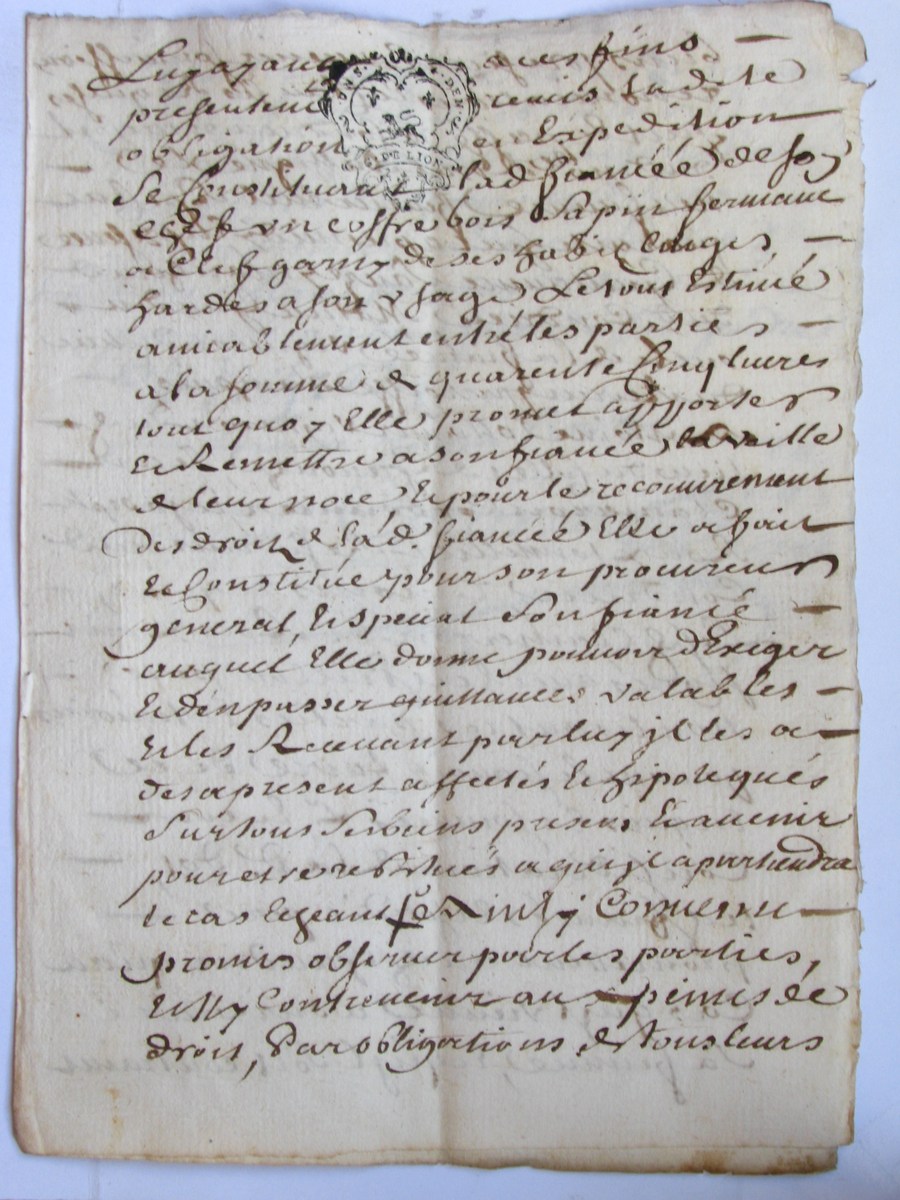 Luy ayant a ces fins
presentem remis lad.te
obligation en Expedition
Se Constituant lad fiancée de son
chef un coffre bois Sapin fermant
a Clef garny de ses habis linges
hardes a son usage Le tout Estimé
amicablement entre les parties
a la somme de quarente Cinq livres
tout quoy Elle promet apporter
Et Remettre a son fiancée la veille
de leur noce Et pour le recouvrement
des droit de lad. fiancée Elle a fait
Et Constitué pour son procureur
general, Et special Son fiancé
auquel Elle donne pouvoir d'Exiger
Et d'en passer quittances valables
Et les Recevant par luy jl les a
des a present affectés Et hipotequés
Sur tous Ses biens presens Et avenir
pour etre restitués a qui jl apartiendra
le cas Echeant Ainsy Convenu
promis observer par les parties,
Et ny Contrevenir aux peines de
droit, Par obligations de tous leurs
GEN. DE LION